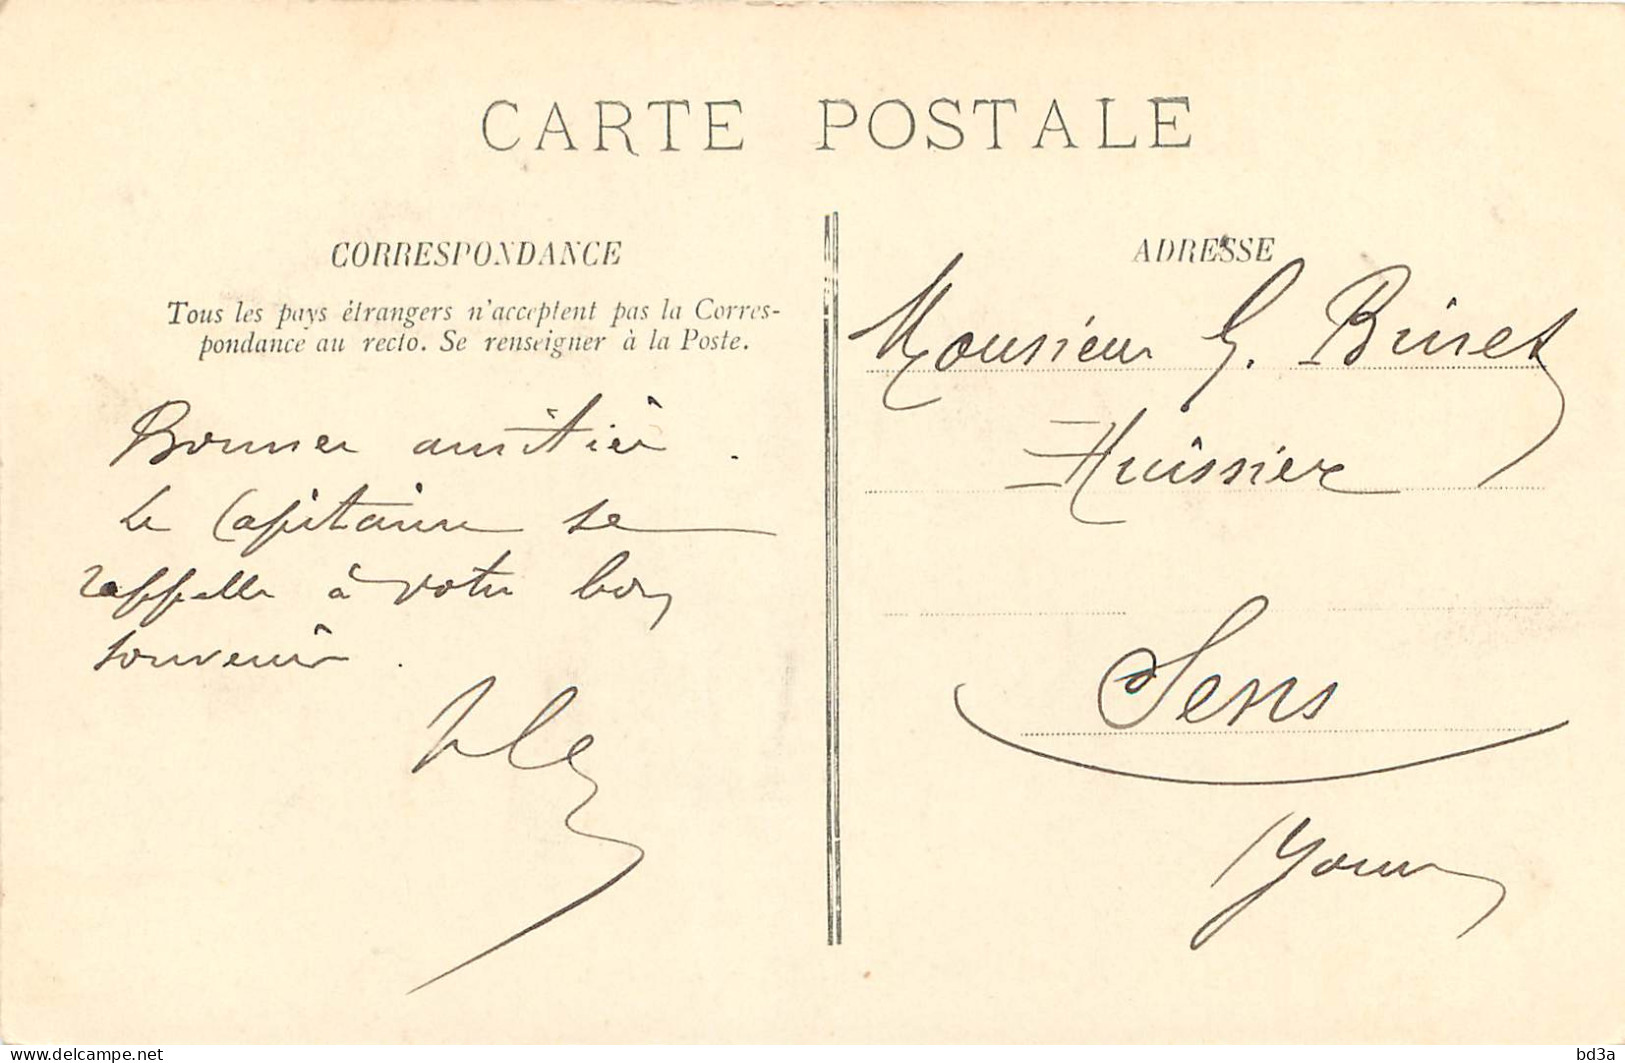 CARTE POSTALE
CORRESPONDANCE
Tous les pays étrangers n'acceptent pas la Corres-
pondance au recto. Se renseigner à la Poste.
Bonnes amitiés.
Le Capitaine se
rappelle à votre bon
souvenir.
ADRESSE
Monsieur G. Binet
Huissier
Sens
(Yonne)
www.delcampe.net
bd3a